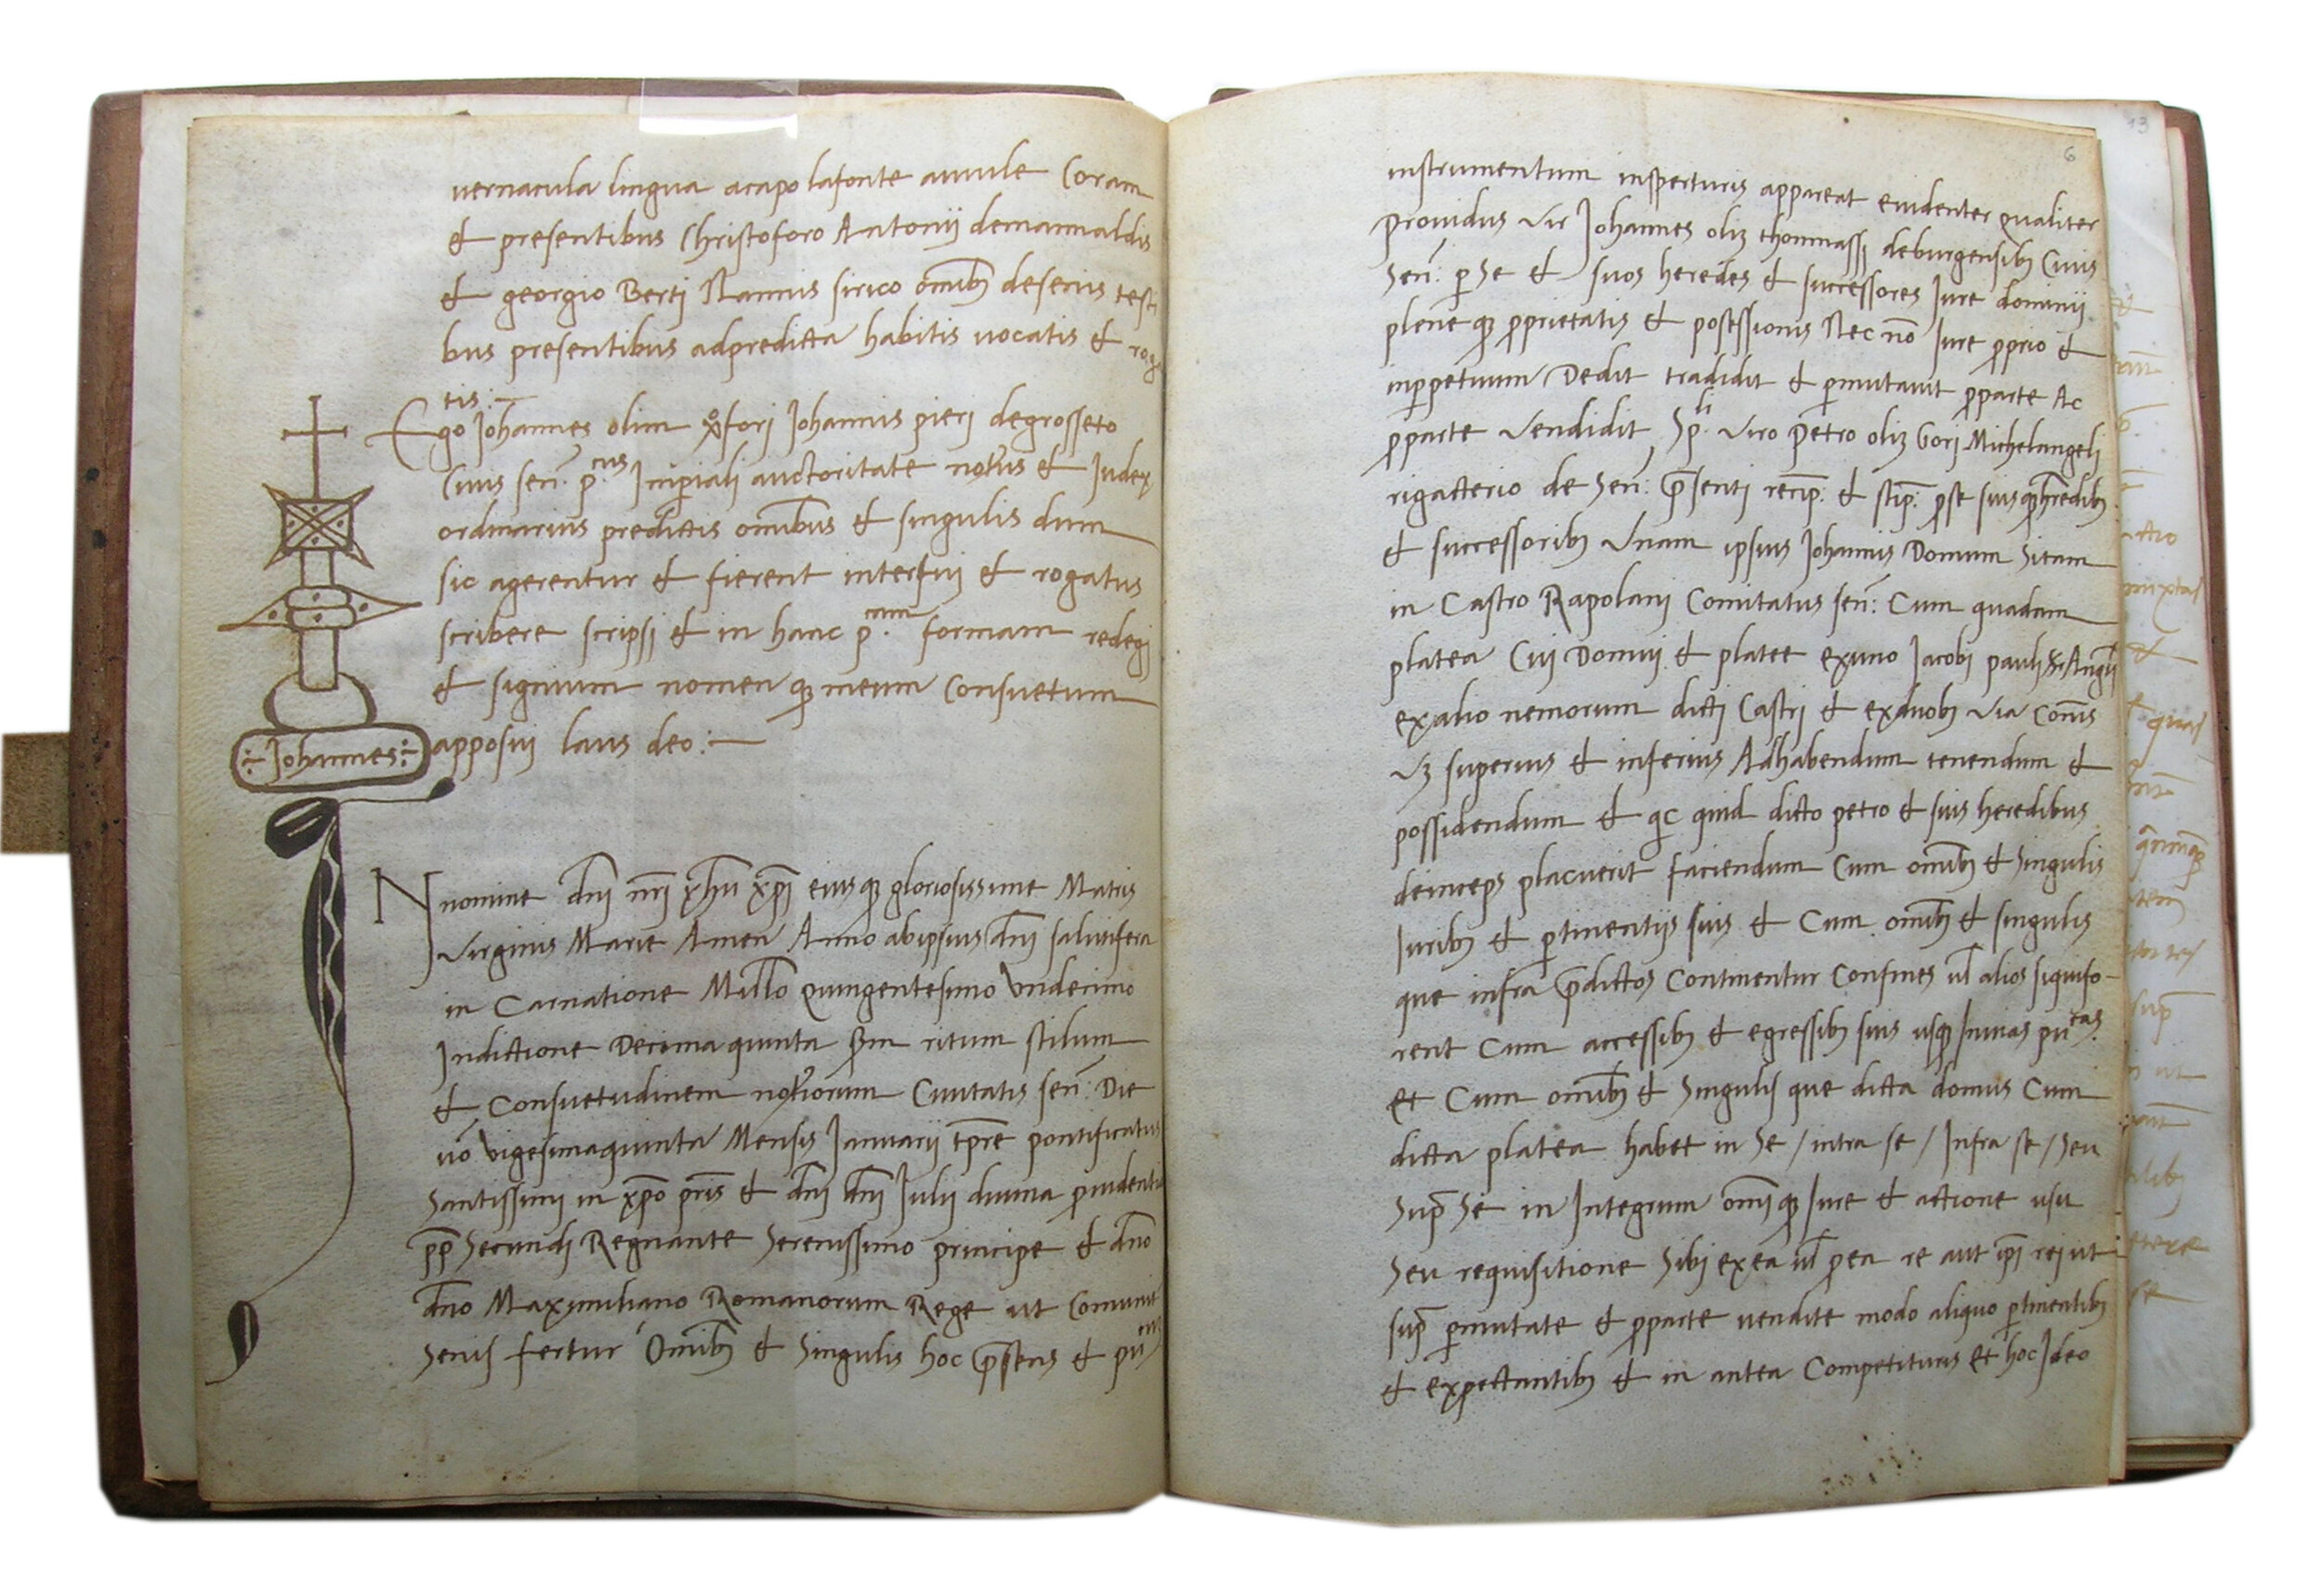 vernacula lingua acapo lafonte Coram
& presentibus Christoforo Antonii
& georgio Berti Nannis sirico omibȝ desenis testi
bus presentibus adpredicta habitis uocatis & roga
tis:
Ego Johannes olim xp̄ofori Johannis pieri degrosseto
Ciuis sen̄. p.cus Imp̄iali auctoritate notus & Judex
ordinarius predictis omibus & singulis dum
sic agerentur & fierent interfui & rogatus
scribere scripsi & in hanc p.cam formam redegi
& signum nomen qȝ meum Consuetum
·:Johannes:· apposui laus deo:
IN nomine dn̄i nr̄i yh̄u xp̄i eiusqȝ gloriosissime Matris
Virginis Marie Amen Anno abipsius dn̄i salutifera
in Carnatione Mill̄o quingentesimo Vndecimo
Indictione Decima quinta sm̄ ritum stilum
& Consuetudinem notariorum Ciuitatis sen̄: Die
uō Vigesimaquinta Mensis Januarii tp̄re pontificatus
Santissimi in xp̄o pr̄is & dn̄i dn̄i Julii diuina prouidentia
pp̄ Secundi Regnante Serenissimo principe & dn̄o
dn̄o Maximiliano Romanorum Rege ut Comunit
Senis fertur Omibȝ & Singulis hoc p̄sens & pu.cum
6
instrumentum inspecturis appareat euidenter qualiter
Prouidus Vir Johannes oliȝ thommassi deburgensibȝ Ciuis
Sen̄: p̱ Se & suos heredes & successores Jure dominii
plene qȝ p̱prietatis & possessionis Nec nō Jure p̱prio &
inp̱petuum Dedit tradidit & p̱mutauit p̱parte Ac
p̱parte Vendidit Sp.li Viro Petro oliȝ Gori Michelangeli
rigacterio de Sen̄: p̄senti recip̄: & stip̄: p̱se suisqȝ heredibȝ
& successoribȝ Vnam ipsius Johannis Domum Sitam
in Castro Rapolani Comitatus sen̄: Cum quadam
platea Cui Domui & platee exuno Jacobi pauli
exalio nemorum dicti Castri & exduobȝ Via Com̄is
Vȝ superius & inferius Adhabendum tenendum &
possidendum & qc quid dicto petro & suis heredibus
deinceps placuerit faciendum Cum omibȝ & Singulis
Juribȝ & p̱tinentiis suis & Cum omibȝ & singulis
que infra p̄dictos Continentur Confines ul̄ alios siquifo-
rent Cum accessibȝ & egressibȝ suis usqȝ Inuias pu.cas
et Cum omibȝ & Singulis que dicta domus Cum
dicta platea habet in Se / intra se / Infra se / Seu
Sup̄ Se in Integrum omiqȝ Jure & actione usu
Seu requisitione Sibi exea ul̄ p̱ea re aut ip̄i rei ut
sup̄ p̱mutate & p̱parte uendite modo aliquo p̱tinentibȝ
& expectantibȝ & in antea Competituris Et hoc Ideo
13